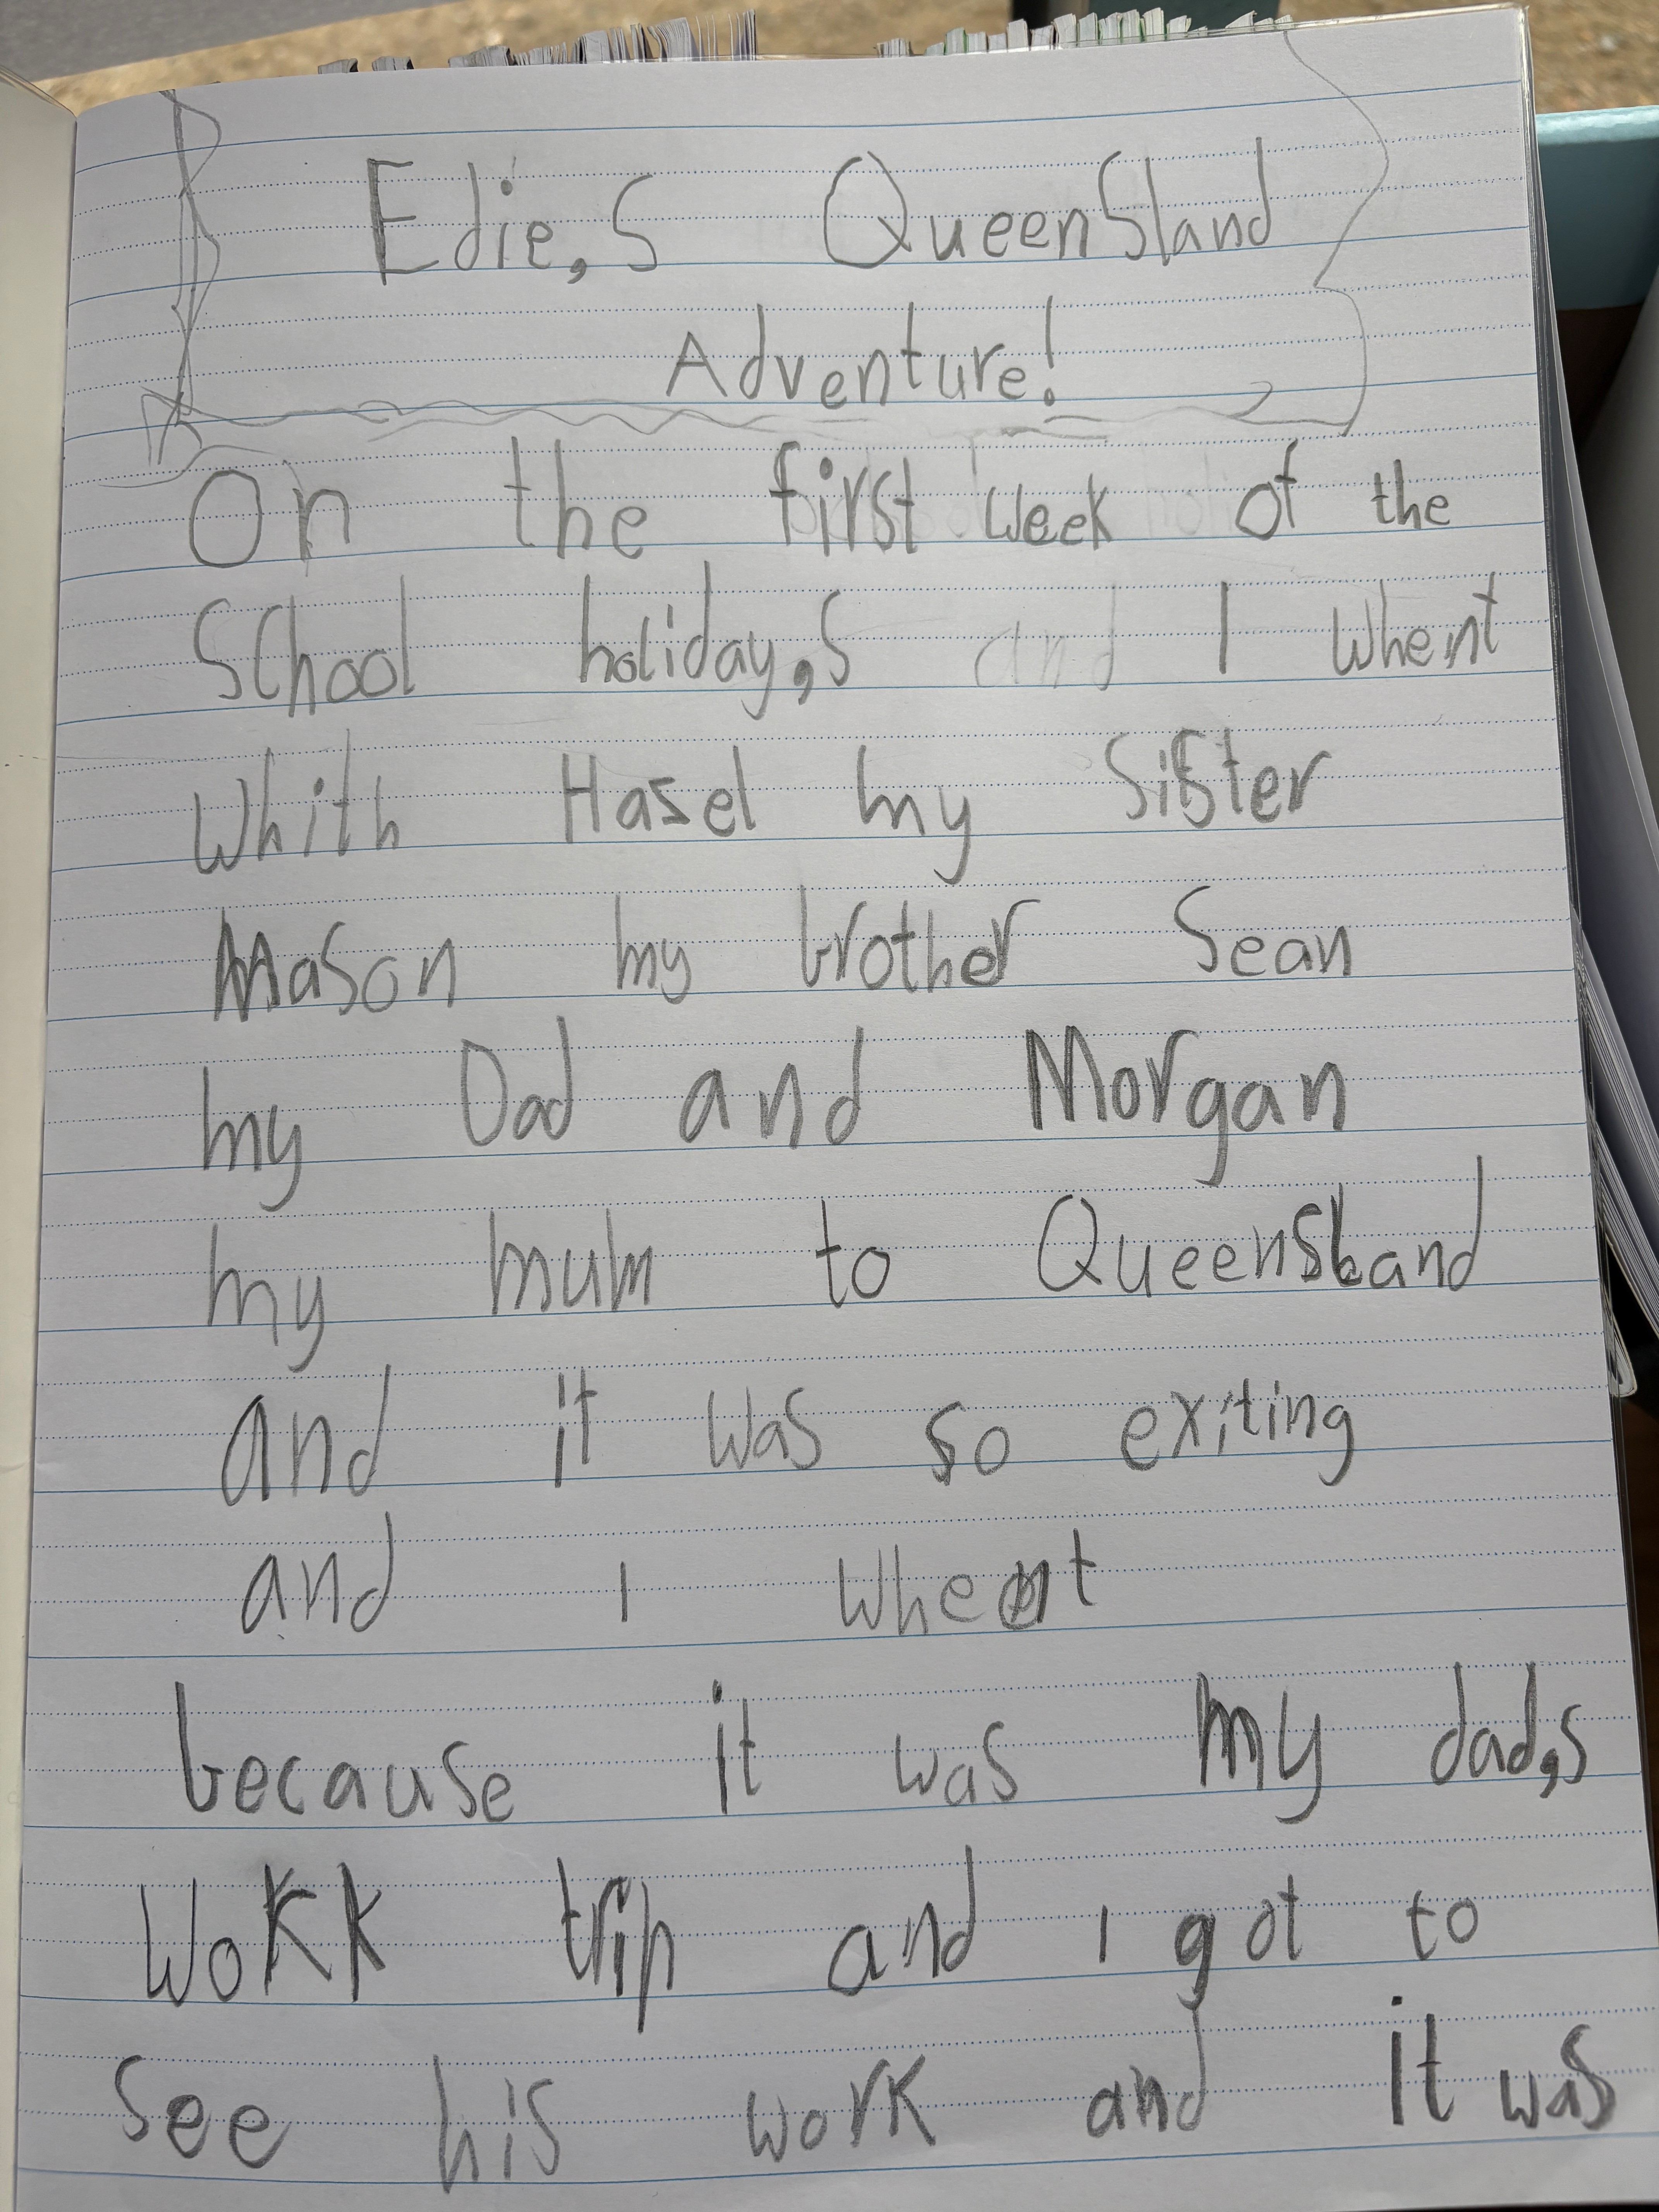 Edie,s Queensland
Adventure!
On the first week of the
School holiday,s and I whent
Whith Hasel my Sister
Mason my brother Sean
my Dad and Morgan
my mum to Queensland
and it was so exiting
and I whent
because it was my dad,s
Wokk trip and I got to
See his work and it was